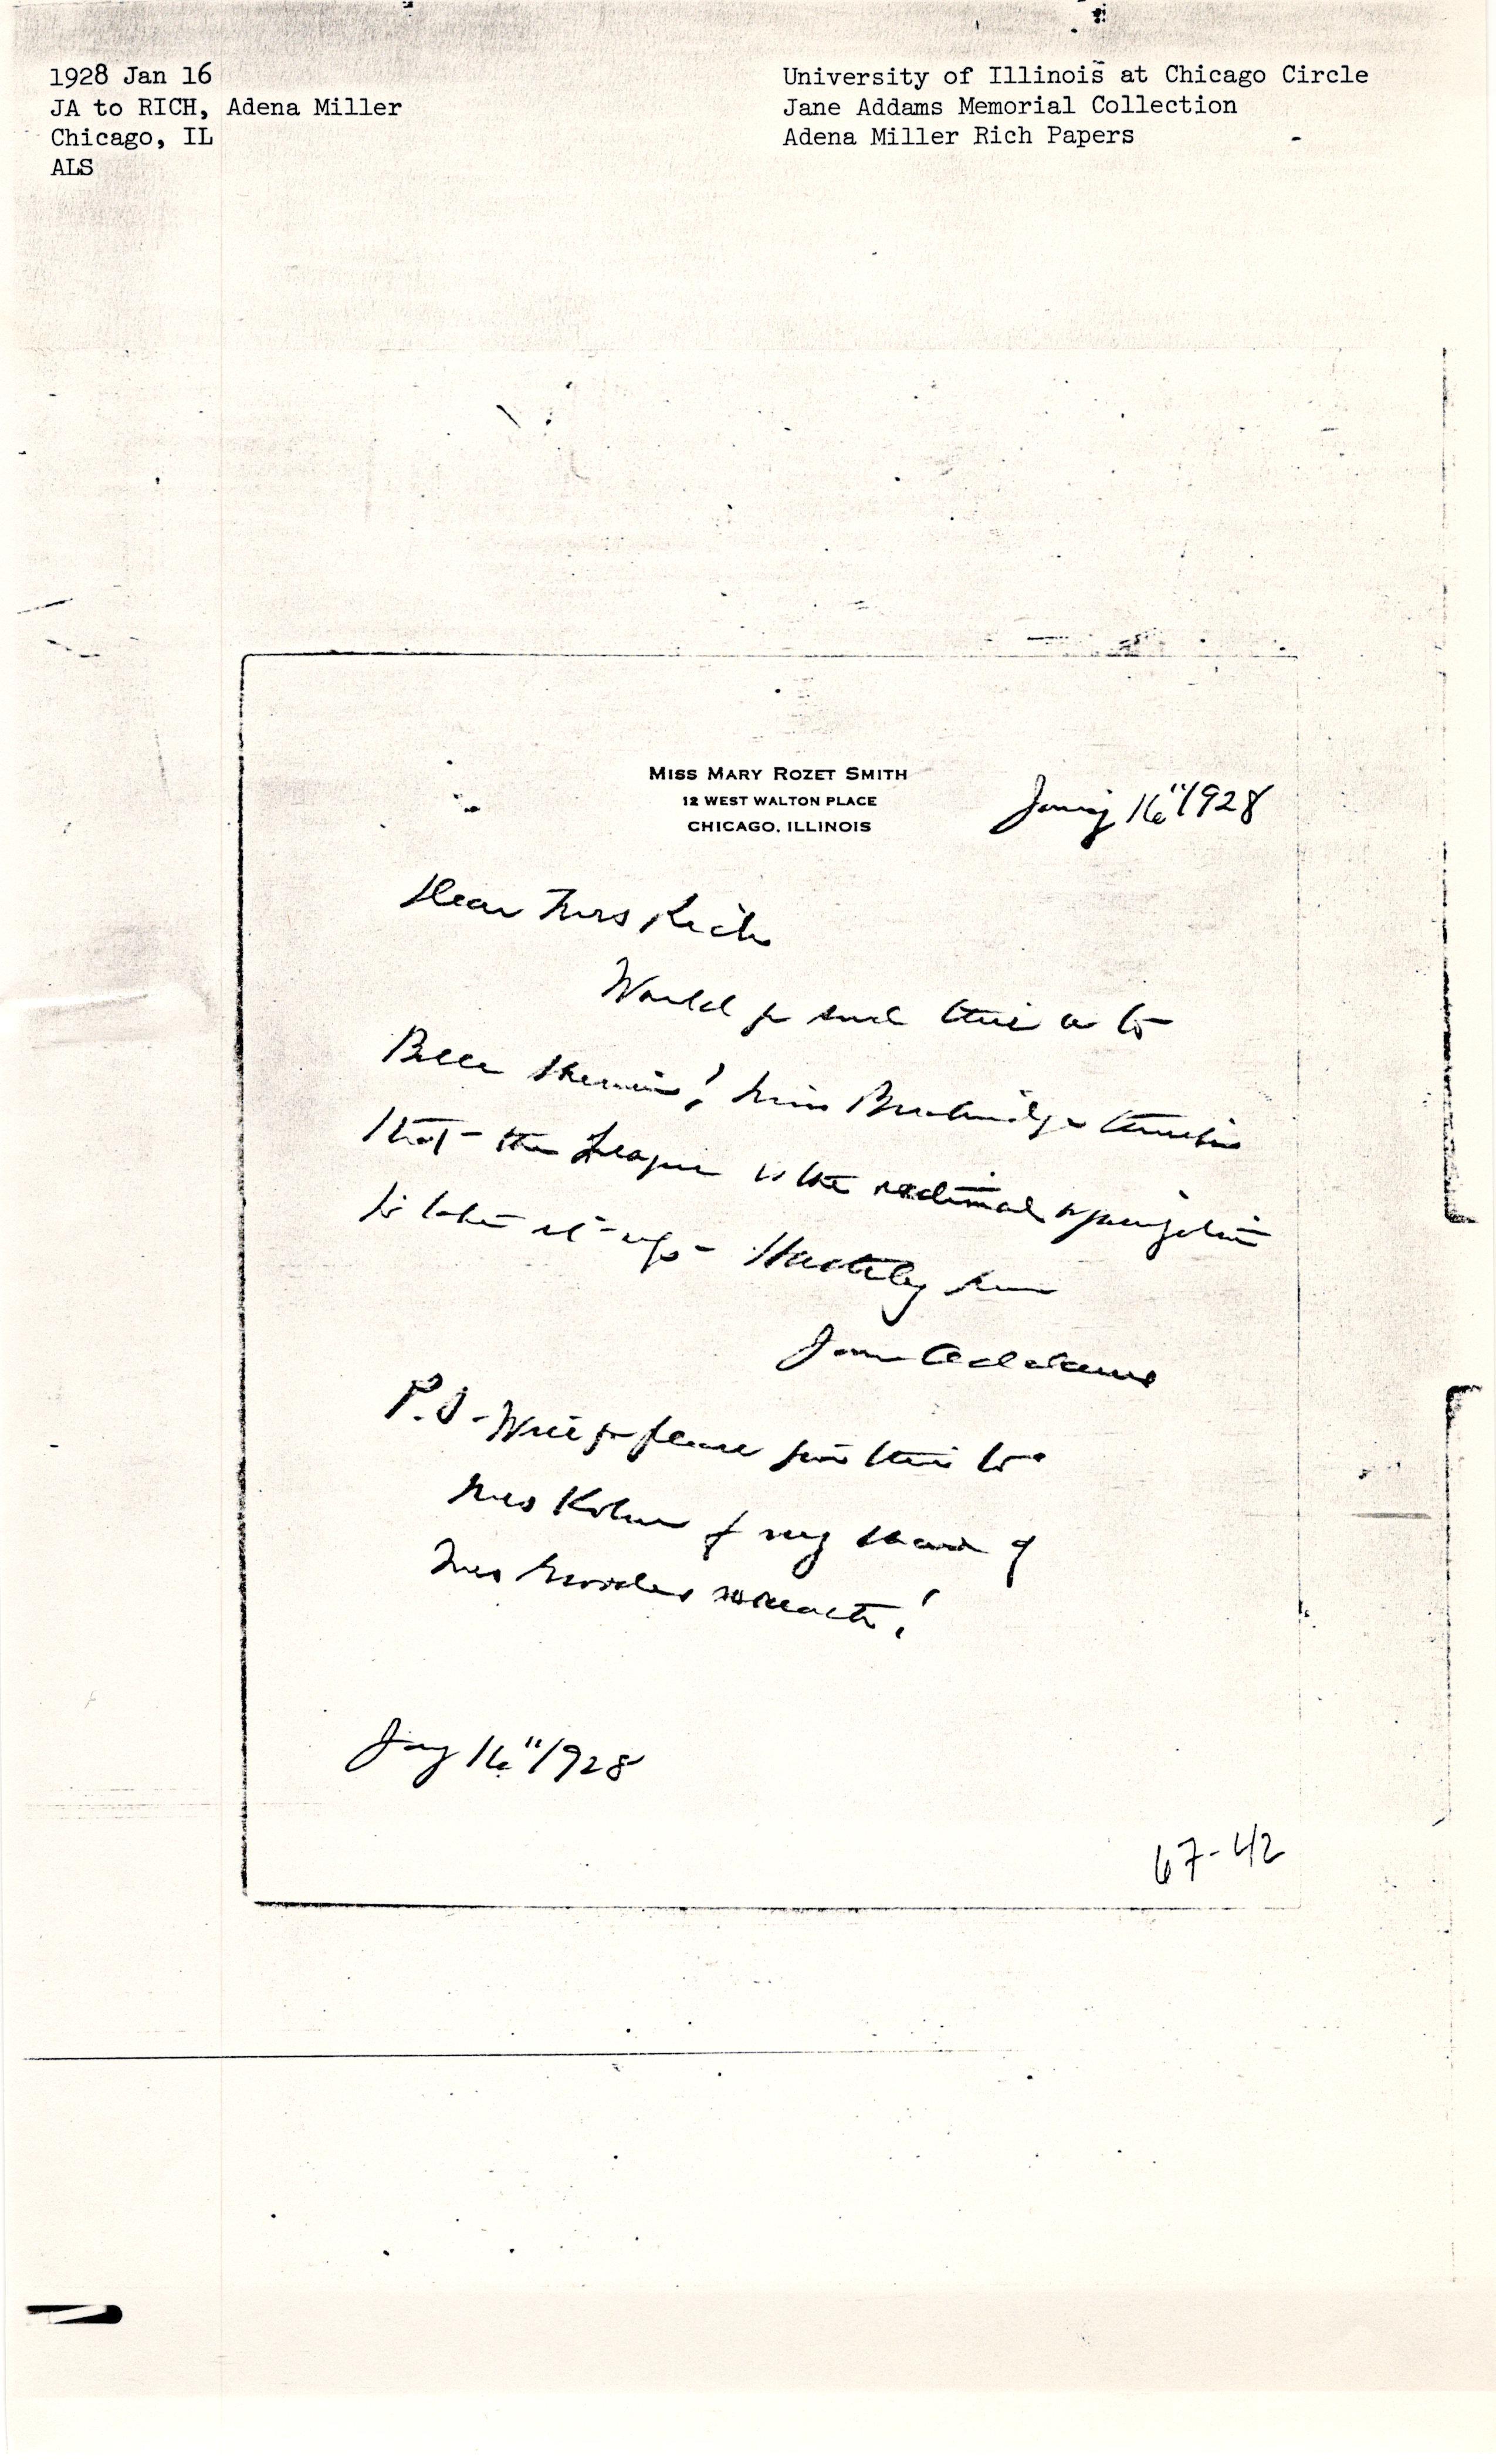 1928 Jan 16
JA to RICH, Adena Miller
Chicago, IL
ALS
University of Illinois at Chicago Circle
Jane Addams Memorial Collection
Adena Miller Rich Papers
MISS MARY ROZET SMITH
12 WEST WALTON PLACE
CHICAGO, ILLINOIS
16" 1928
Dear Mrs Rich
Would send this on to
Belle Sherwin! Miss Breckinridge thinks
that the League is the national organization
to take it up - Hastily
Jane Addams
P.S - Will you please give this to
Mrs Kohn for my share of
Mrs
16" 1928
67-42